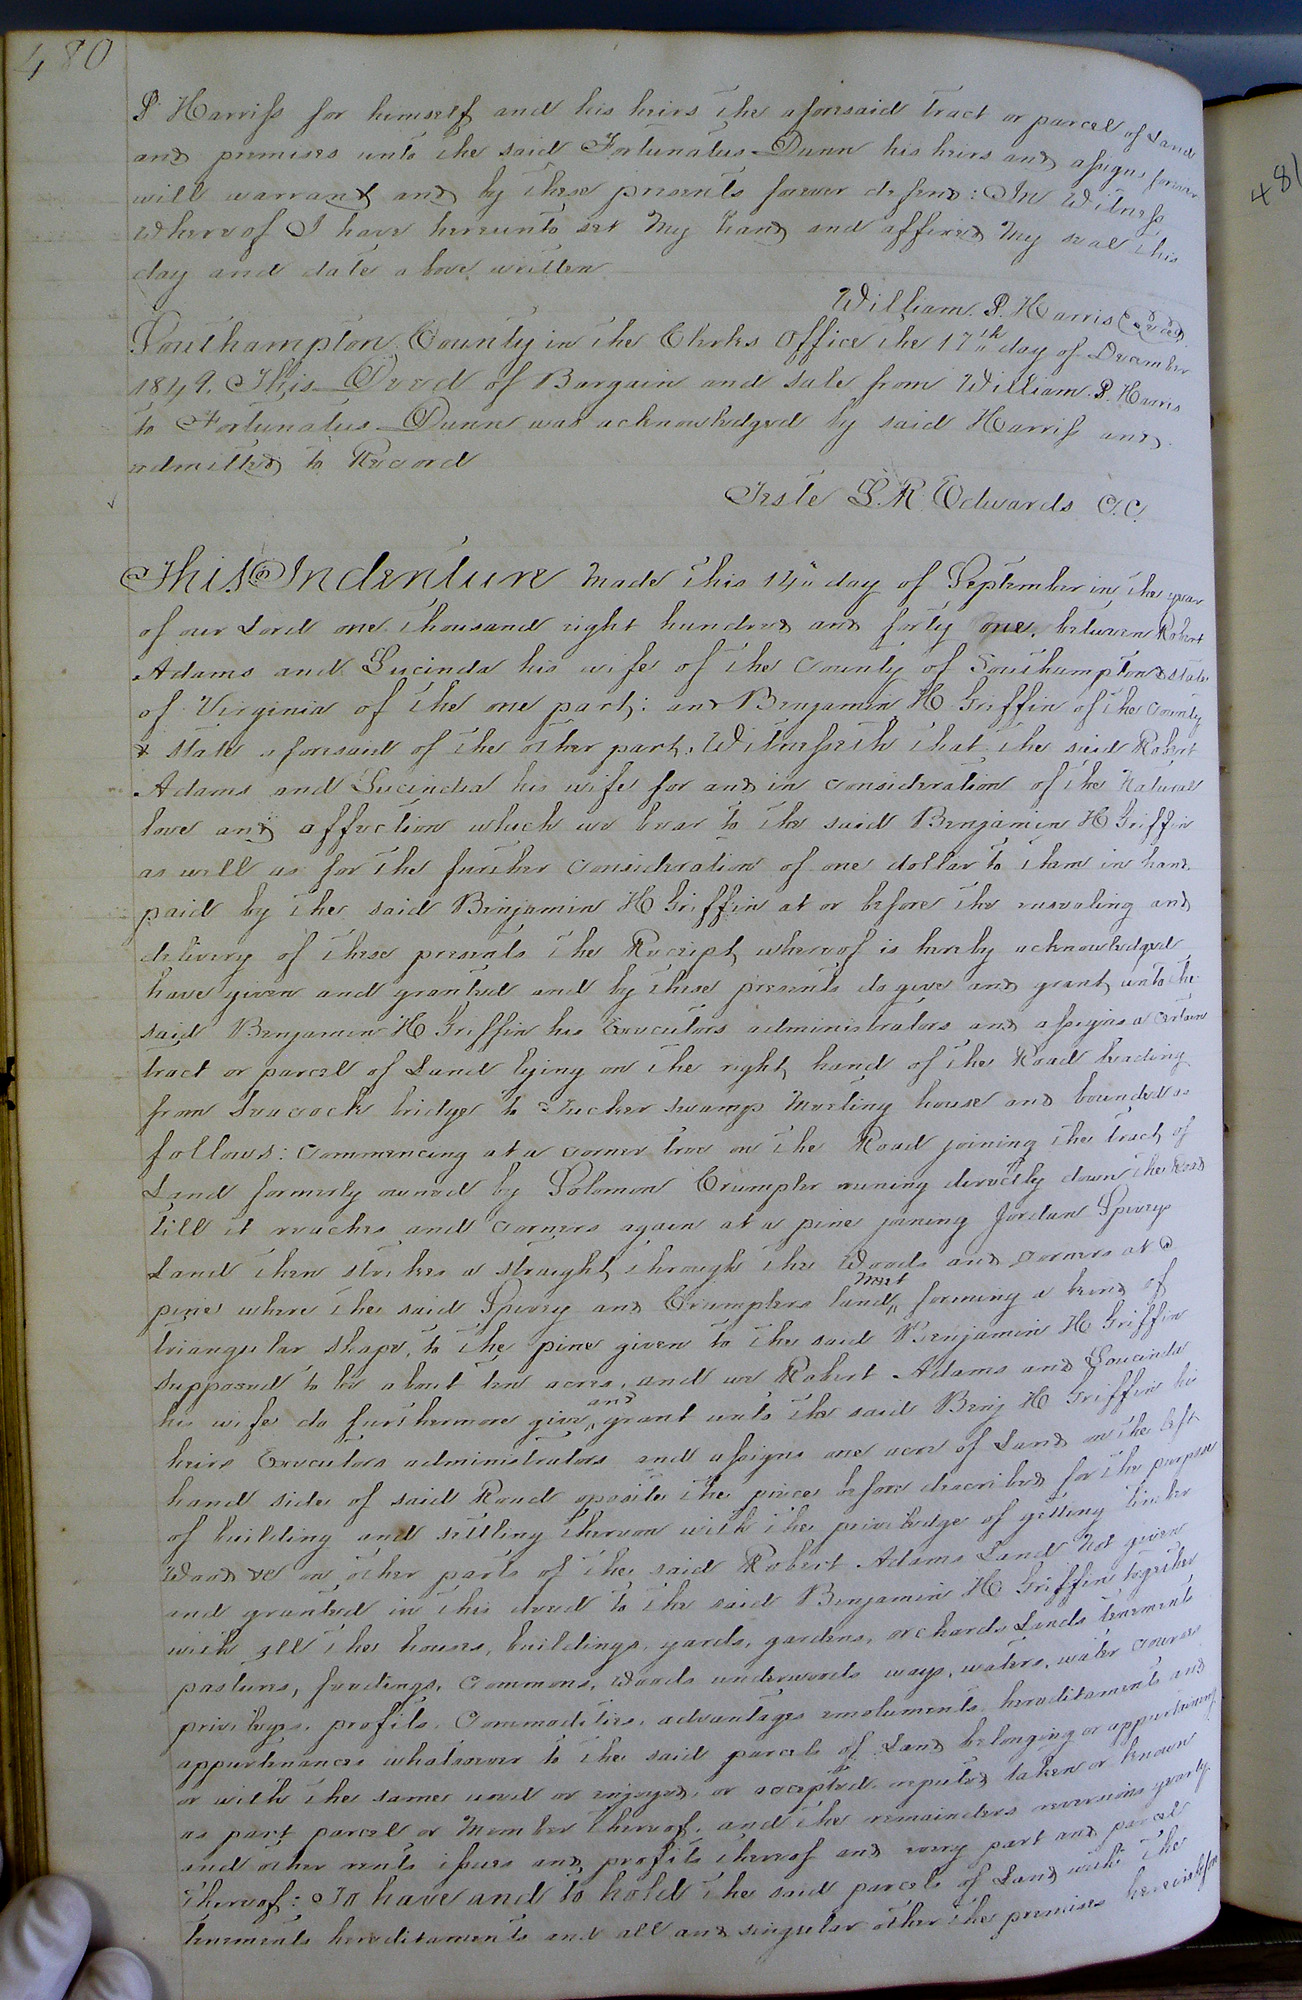 480
P. Harriss for himself and his heirs the aforesaid tract or parcel of Land
and premises unto the said Fortunatus Dunn his heirs and assigns forever
will warrant and by these presents forever defend: In Witness
Whereof I have hereunto set My hand and affixed My seal this
day and date above written
William. P. Harris (Seal)
Southampton County in the Clerks Office the 17th day of December
1849. This Deed of Bargain and Sale from William. P. Harris
to Fortunatus Dunn was acknowledged by said Harriss and
admitted to Record
Teste L. R. Edwards C.C.
This Indenture Made this 14" day of September in the year
of our Lord one thousand eight hundred and forty one, between Robert
Adams and Lucinda his wife of the County of Southampton & state
of Virginia of the one part: and Benjamin H Griffin of the County
& State aforesaid of the other part, Witnesseth that the said Robert
Adams and Lucinda his wife for and in consideration of the Natural
love and affection which we bear to the said Benjamin H Griffin
as well as for the further consideration of one dollar to them in hand
paid by the said Benjamin H Griffin at or before the ensealing and
delivery of these presents the Receipt whereof is hereby acknowledged
have given and granted and by these presents do give and grant unto the
said Benjamin H Griffin his Executors administrators and assigns a certain
tract or parcel of Land lying on the right hand of the Road leading
from Seacock bridge to Tucker swamp Meeting house and bounded as
follows: Commencing at a corner tree on the Road joining the tract of
Land formerly owned by Solomon Crumpler runing directly down the Road
till it reaches and corners again at a pine joining Jordan Spiveys
Land then strikes a straight through the Woods and corners at a
pine where the said Spivey and Crumplers land Meet forming a kind of
triangular shape, to the pine given to the said Benjamin H Griffin
Supposed to be about ten acres, and we Robert Adams and Loucinda
his wife do furthermore give and grant unto the said Benj H Griffin his
heirs Executors administrators and assigns one acre of Land on the left
hand side of said Road oposite the piece before described for the purpose
of building and settling thereon with the priviledge of getting timber
Wood &c on other parts of the said Robert Adams Land Not given
and granted in this deed to the said Benjamin H Griffin together
with all the houses, buildings, yards, gardens, orchards Lands tenements
pastures, feedings, Commons, Woods underwoods ways, waters, water courses
priviledges, profits, Commodities, advantages emoluments, hereditaments and
appurtenances whatsoever to the said parcels of Land belonging or appertaining
or with the same used or enjoyed, or accepted reputed taken or known
as part parcel or Member thereof, and the remainders reversions yearly
and other rents issues and profits thereof and every part and parcel
thereof: To have and to hold the said parcels of Land with the
tenements hereditaments and all and singular other the premises hereinbefore
481